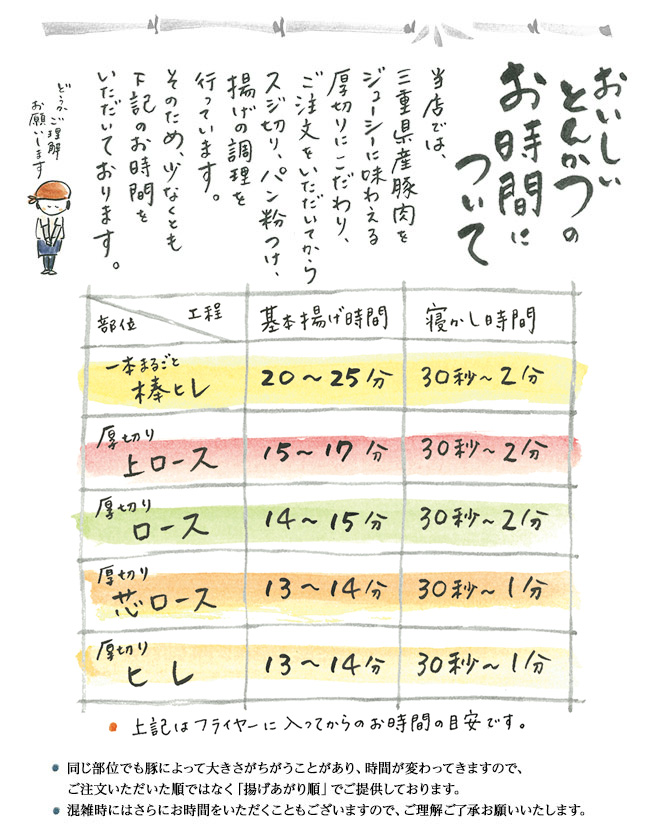 おいしい
とんかつの
お時間に
ついて
当店では、
三重県産豚肉を
ジューシーに味わえる
厚切りにこだわり、
ご注文をいただいてから
スジ切り、パン粉つけ、
揚げの調理を
行っています。
そのため、少なくとも
下記のお時間を
いただいております。
どうかご理解
お願いします
部位 工程 基本揚げ時間 寝かし時間
一本まるごと
棒ヒレ 20〜25分 30秒〜2分
厚切り
上ロース 15〜17分 30秒〜2分
厚切り
ロース 14〜15分 30秒〜2分
厚切り
芯ロース 13〜14分 30秒〜1分
厚切り
ヒレ 13〜14分 30秒〜1分
● 上記はフライヤーに入ってからのお時間の目安です。
● 同じ部位でも豚によって大きさがちがうことがあり、時間が変わってきますので、
ご注文いただいた順ではなく「揚げあがり順」でご提供しております。
● 混雑時にはさらにお時間をいただくこともございますので、ご理解ご了承お願いいたします。